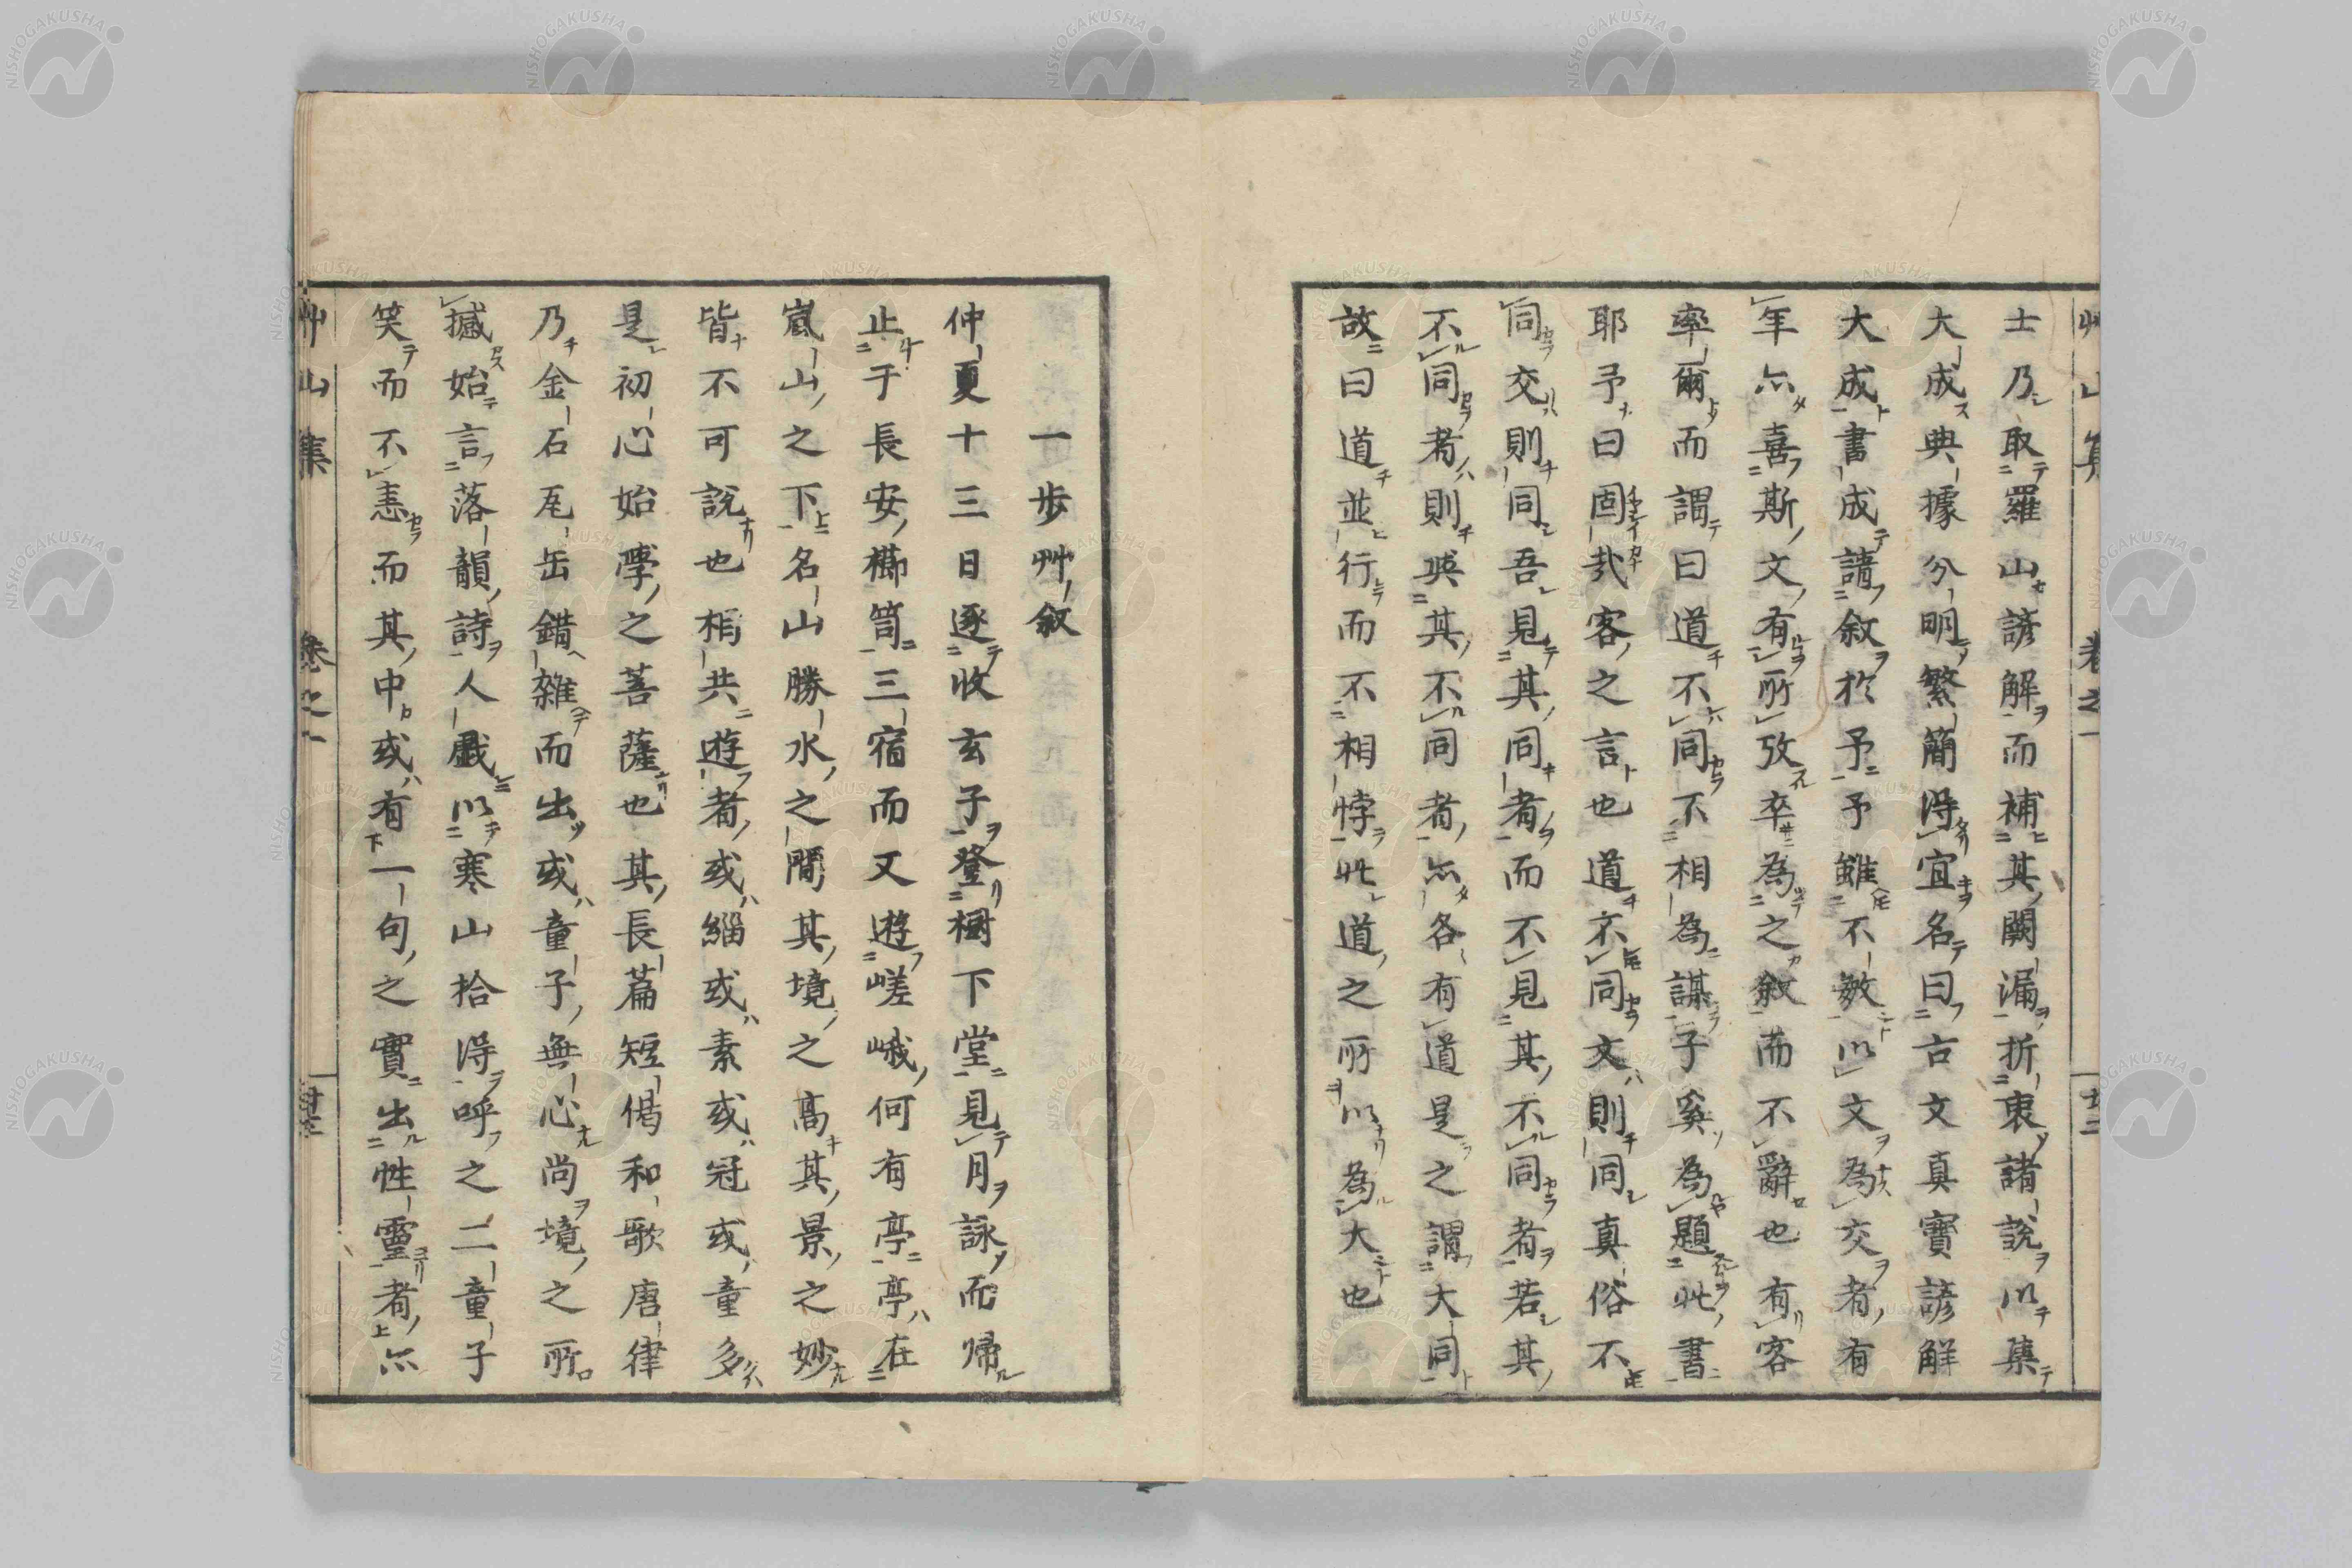 士乃取羅山諺解而補其闕漏折衷諸說以集
大成典據分明繁簡得宜名曰古文真寶諺解
大成書成請敘於予予雖不敏以文為交者有
年亦喜斯文有所攷卒為之敘而不辭也有客
率爾而謂曰道不同不相為謀子奚為題此書
耶予曰固哉客之言也道不同文則同真俗不
同交則同吾見其同者而不見其不同者若其
不同者則與其不同者亦各有道是之謂大同
故曰道並行而不相悖此道之所以為大也
一步艸敘
仲夏十三日逐收玄子登棚下堂見月詠而歸
止于長安櫛笥三宿而又遊嵯峨何有亭亭在
嵐山之下名山勝水之間其境之高其景之妙
皆不可說也相共遊者或緇或素或冠或童多
是初心始學之菩薩也其長篇短偈和歌唐律
乃金石瓦缶錯雜而出或童子無心尚境之所
撼始言落韻詩人戲以寒山拾得呼之二童子
笑而不恚而其中或有一句之實出性靈者亦
艸山集 卷之一